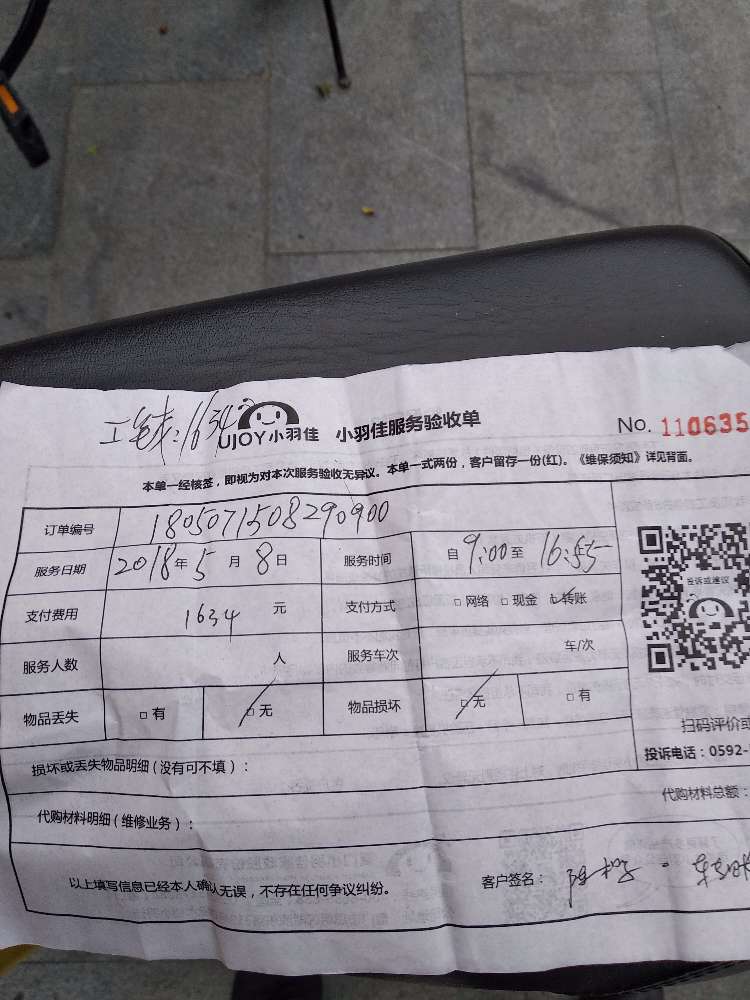 工宅表：1634
UJOY小羽佳 小羽佳服务验收单 No. 110635
本单一经核签，即视为对本次服务验收无异议。本单一式两份，客户留存一份(红)。《维保须知》详见背面。
订单编号 1805071508290900
服务日期 2018年5月8日 服务时间 自9:00至16:55
支付费用 1634 元 支付方式 □网络 □现金 ☑转账
投诉或建议
服务人数 人 服务车次 车/次
物品丢失 □有 ☑无 物品损坏 ☑无 □有
扫码评价或
损坏或丢失物品明细(没有可不填)： 投诉电话：0592-
代购材料明细(维修业务)： 代购材料总额：
以上填写信息已经本人确认无误，不存在任何争议纠纷。 客户签名：